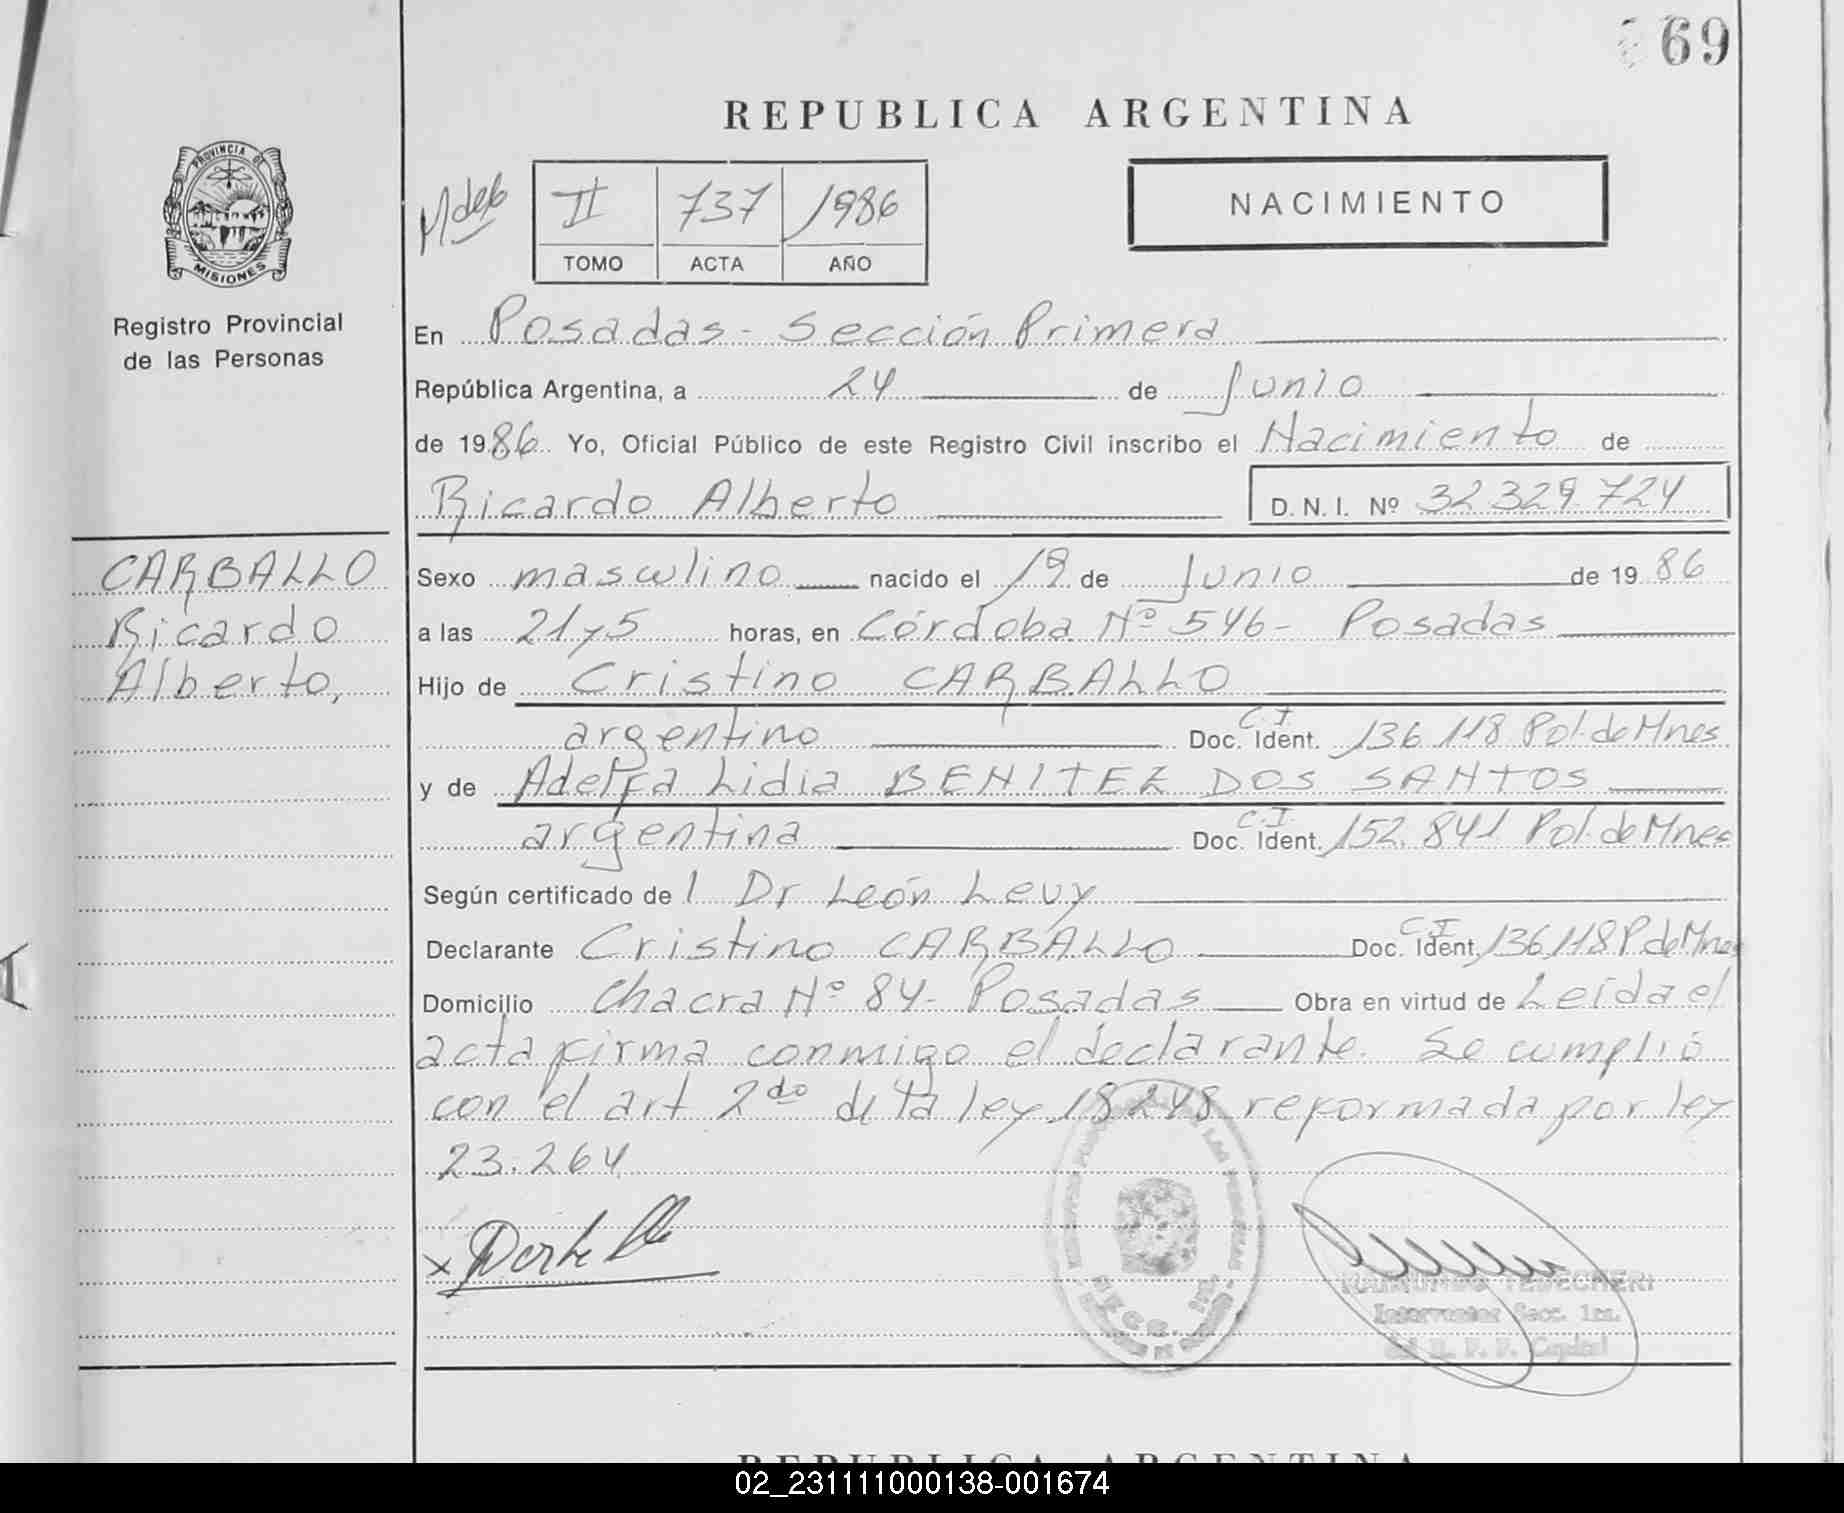 69
REPUBLICA ARGENTINA
PROVINCIA DE
MISIONES
Registro Provincial
de las Personas
II 737 1986
TOMO ACTA AÑO
NACIMIENTO
En Posadas - Sección Primera
República Argentina, a 24 de Junio
de 1986 Yo, Oficial Público de este Registro Civil inscribo el Nacimiento de
Ricardo Alberto D.N.I. Nº 32 329.724
CARBALLO
Ricardo
Alberto,
Sexo masculino nacido el 19 de Junio de 1986
a las 21 y 5 horas, en Córdoba Nº 546 - Posadas
Hijo de Cristino CARBALLO
argentino Doc. Ident. C.I. 136.118 Pol. de Mnes
y de Adelfa Lidia BENITEZ DOS SANTOS
argentina Doc. Ident. C.I. 152.841 Pol. de Mnes
Según certificado de l Dr León Levy
Declarante Cristino CARBALLO Doc. Ident. C.I. 136.118 P. de Mnes
Domicilio Chacra Nº 84 - Posadas Obra en virtud de Leída el
acta firma conmigo el declarante. Se cumplió
con el art 2do de la ley 18248 reformada por ley
23.264
x
Interventor Secc. 1ra.
del R. P. P. Capital
REPUBLICA ARGENTINA
02_231111000138-001674